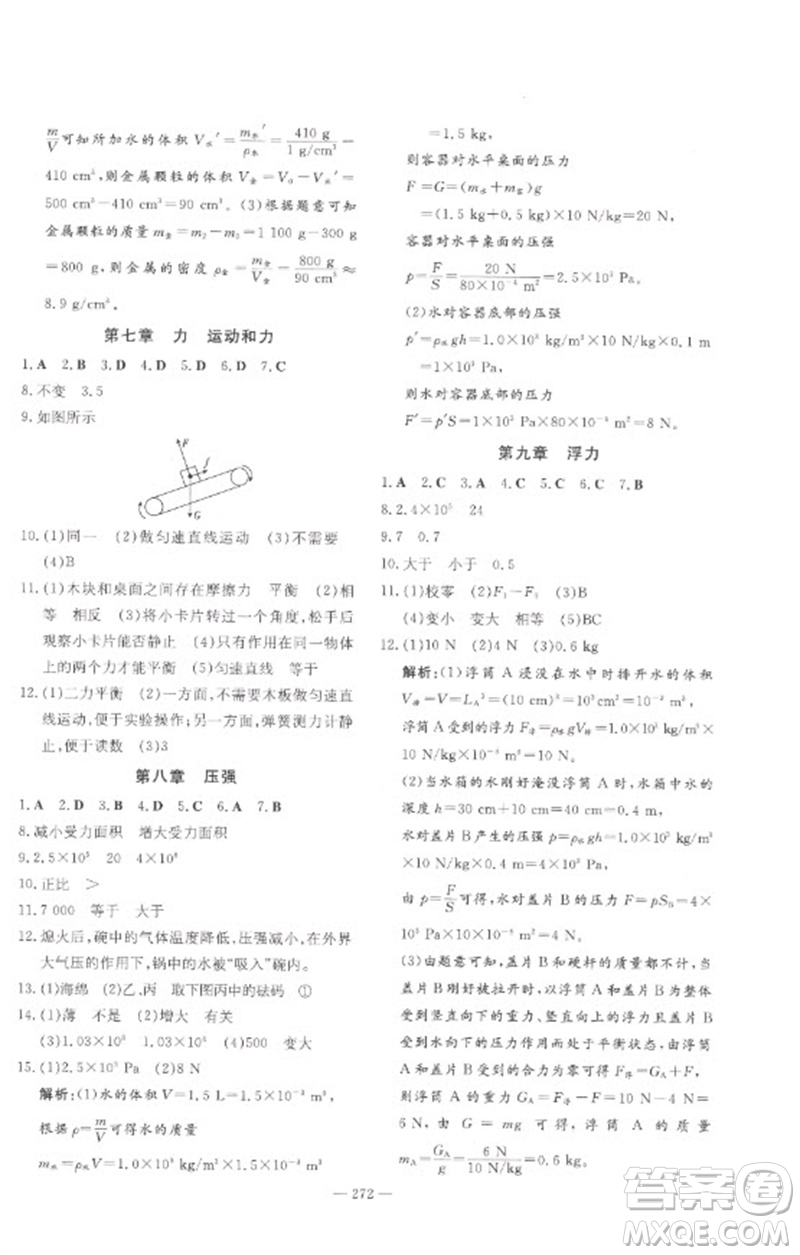 m/V可知所加水的体积 V水′=m水′/ρ水=410 g/1 g/cm³=
410 cm³,则金属颗粒的体积 V金=V0-V水′=
500 cm³-410 cm³=90 cm³. (3)根据题意可知
金属颗粒的质量 m金=m2-m0=1 100 g-300 g
=800 g,则金属的密度 ρ金=m金/V金=800 g/90 cm³≈
8.9 g/cm³.
第七章 力 运动和力
1.A 2.B 3.D 4.D 5.D 6.D 7.C
8.不变 3.5
9.如图所示
F
f
G
10.(1)同一 (2)做匀速直线运动 (3)不需要
(4)B
11.(1)木块和桌面之间存在摩擦力 平衡 (2)相
等 相反 (3)将小卡片转过一个角度,松手后
观察小卡片能否静止 (4)只有作用在同一物体
上的两个力才能平衡 (5)匀速直线 等于
12.(1)二力平衡 (2)一方面,不需要木板做匀速直
线运动,便于实验操作;另一方面,弹簧测力计静
止,便于读数 (3)3
第八章 压强
1.A 2.D 3.B 4.D 5.C 6.A 7.B
8.减小受力面积 增大受力面积
9.2.5×10⁵ 20 4×10⁶
10.正比 >
11.7 000 等于 大于
12.熄火后,碗中的气体温度降低,压强减小,在外界
大气压的作用下,锅中的水被“吸入”碗内。
13.(1)海绵 (2)乙、丙 取下图丙中的砝码 ①
14.(1)薄 不是 (2)增大 有关
(3)1.03×10³ (4)500 变大
15.(1)2.5×10³ Pa (2)8 N
解析:(1)水的体积 V=1.5 L=1.5×10⁻³ m³
根据 ρ=m/V可得水的质量
m水=ρ水V=1.0×10³ kg/m³×1.5×10⁻³ m³
=1.5 kg,
则容器对水平桌面的压力
F=G=(m水+m容)g
=(1.5 kg+0.5 kg)×10 N/kg=20 N,
容器对水平桌面的压强
p=F/S=20 N/80×10⁻⁴ m²=2.5×10³ Pa.
(2)水对容器底部的压强
p′=ρ水gh=1.0×10³ kg/m³×10 N/kg×0.1 m
=1×10³ Pa,
则水对容器底部的压力
F′=p′S=1×10³ Pa×80×10⁻⁴ m²=8 N.
第九章 浮力
1.A 2.C 3.A 4.C 5.C 6.C 7.B
8.2.4×10⁵ 24
9.7 0.7
10.大于 小于 0.5
11.(1)校零 (2)F1-F3 (3)B
(4)变小 变大 相等 (5)BC
12.(1)10 N (2)4 N (3)0.6 kg
解析:(1)浮筒 A 浸没在水中时排开水的体积
V排=V=LA³=(10 cm)³=10³ cm³=10⁻³ m³,
浮筒 A 受到的浮力 F浮=ρ水gV排=1.0×10³ kg/m³×
10 N/kg×10⁻³ m³=10 N.
(2)当水箱的水刚好淹没浮筒 A 时,水的
深度 h=30 cm+10 cm=40 cm=0.4 m,
水对盖片 B 产生的压强 p=ρ水gh=1.0×10³ kg/m³
×10 N/kg×0.4 m=4×10³ Pa,
由 p=F/S可得,水对盖片 B 的压力 F=pSB=4×
10³ Pa×10×10⁻⁴ m²=4 N.
(3)由题意可知,盖片 B 和硬杆的质量不计,
盖片 B 刚好被拉开时,以浮筒 A 和盖片 B 为整体
受到竖直向下的重力、竖直向上的浮力和盖片 B
受到水向下的压力作用而平衡,
由整体受到的合力为零可得 F浮=GA+F,
则浮筒 A 的重力 GA=F浮-F=10 N-4 N=
6 N,由 G=mg 可得,浮筒 A 的质量
mA=GA/g=6 N/10 N/kg=0.6 kg.
— 272 —
答案圈
MXQE.COM